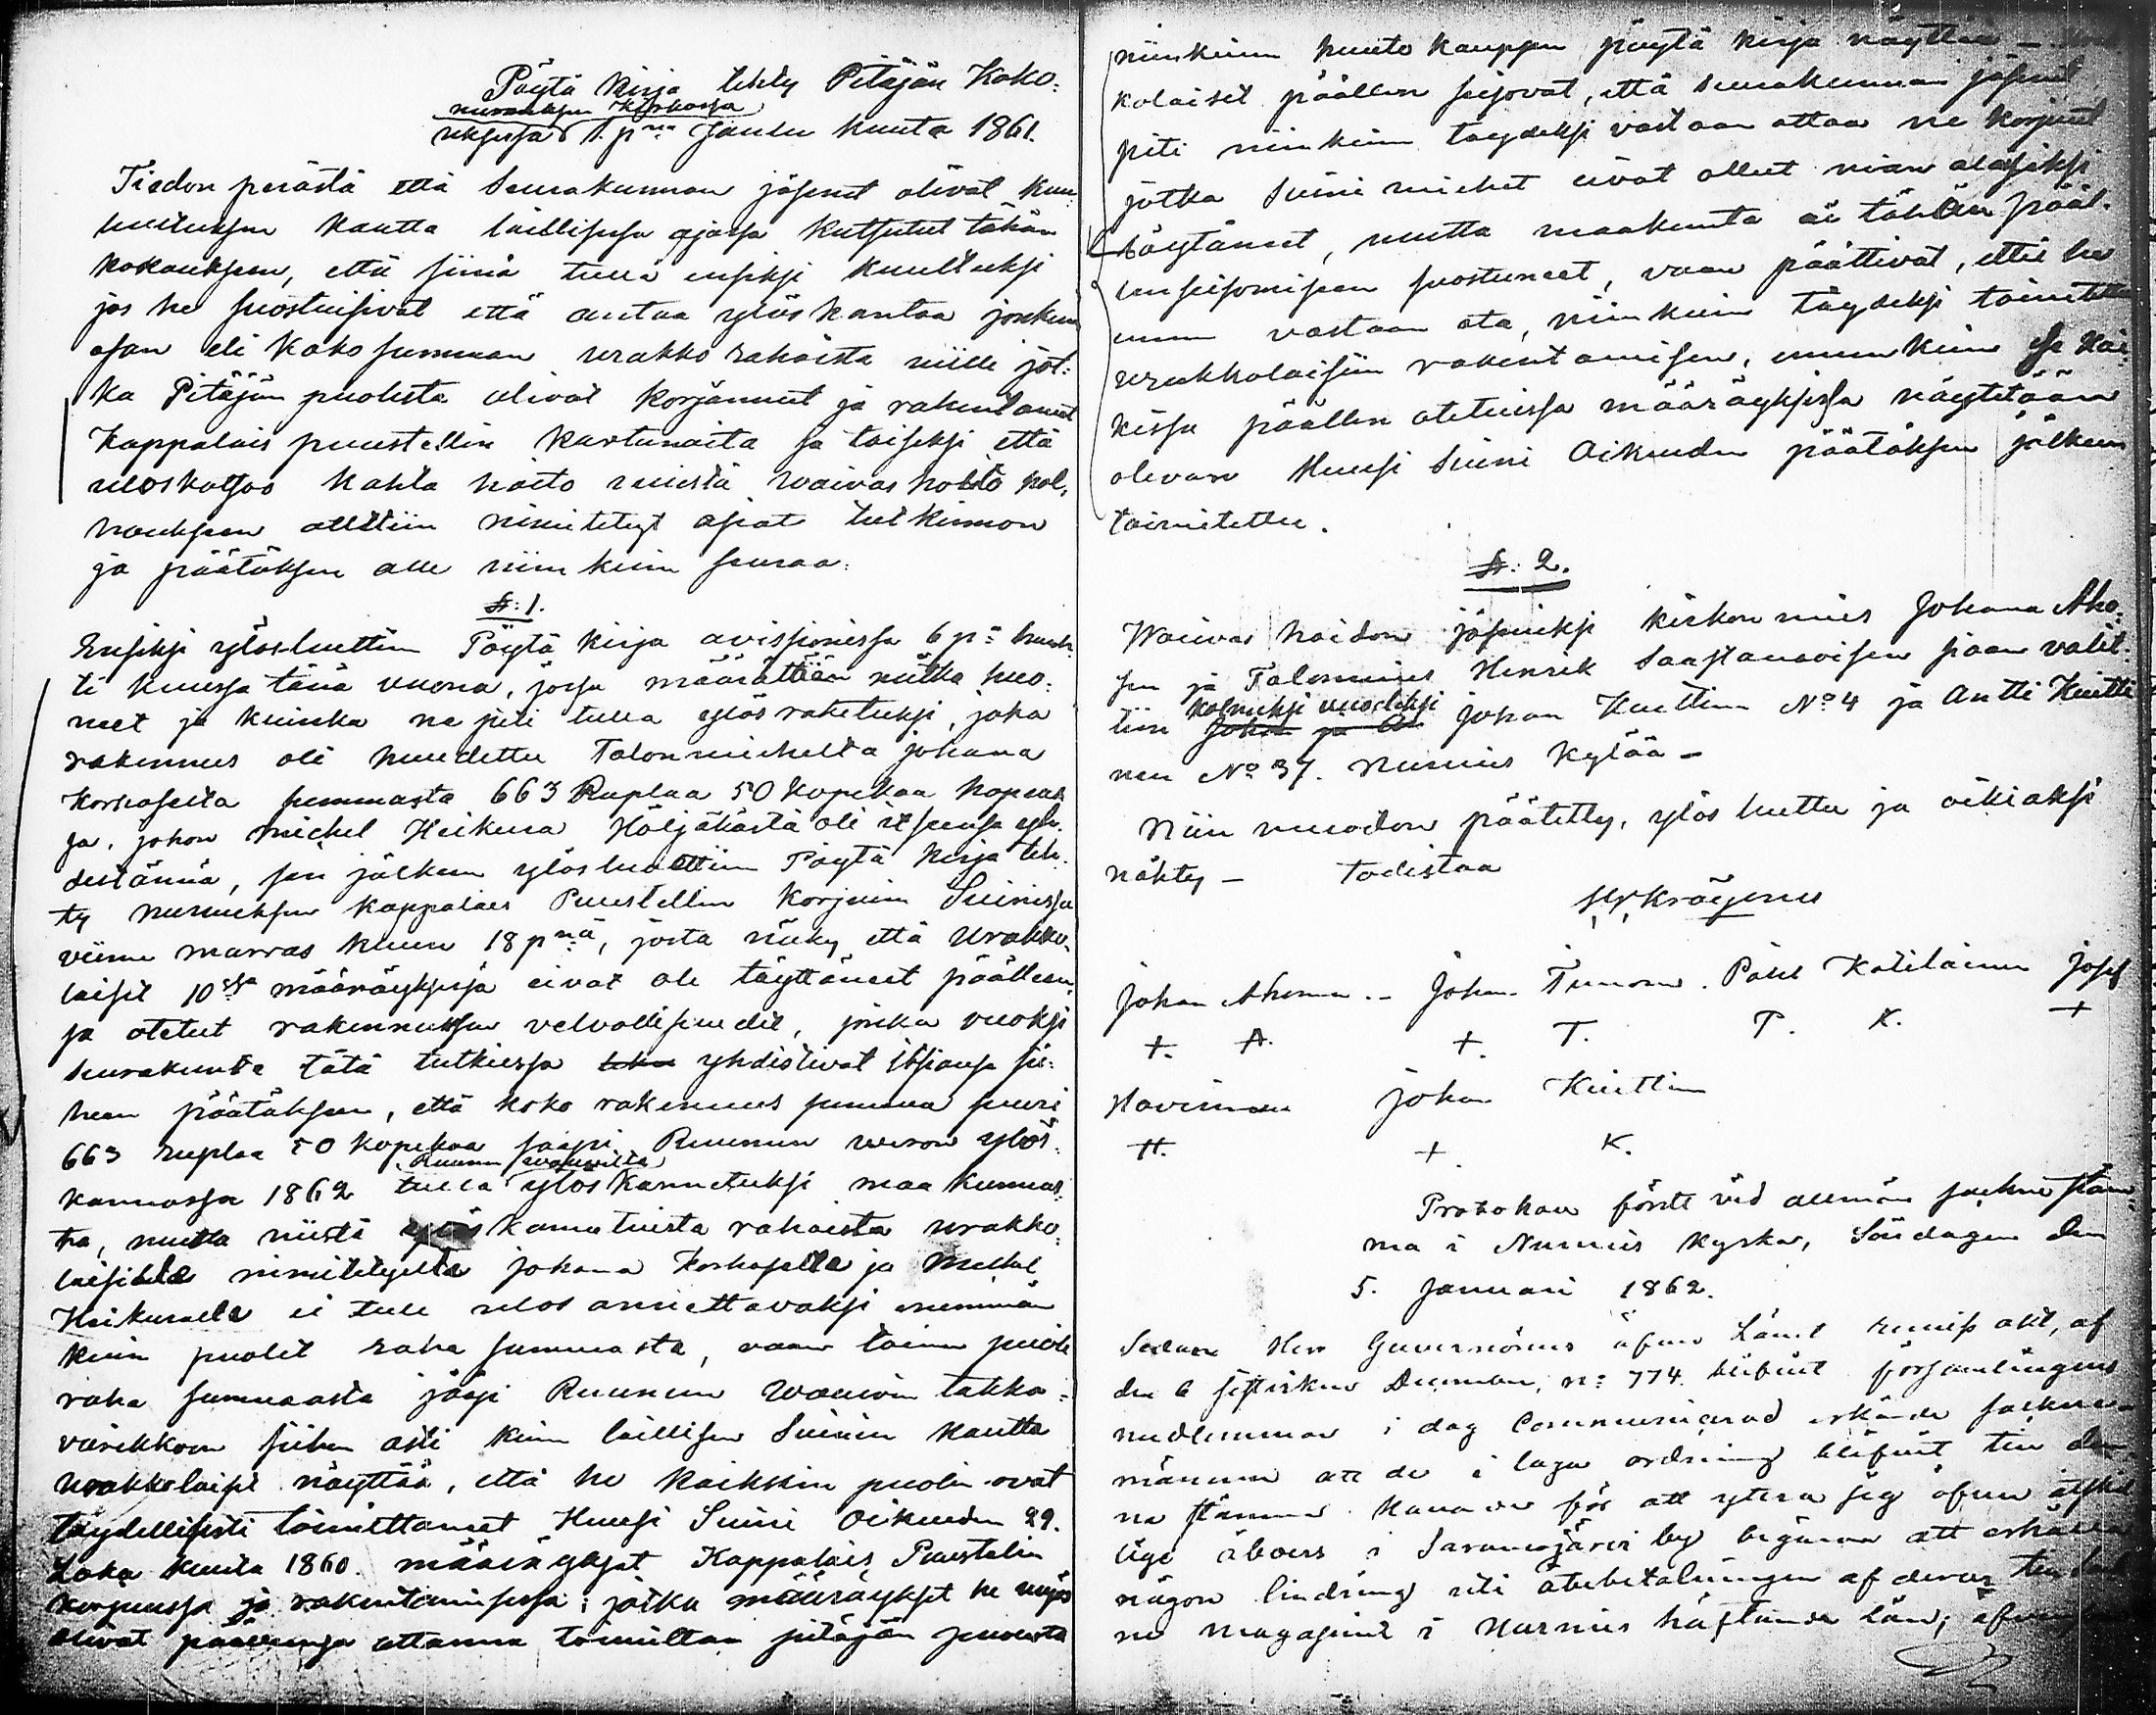 Pöytä Kirja tehty Pitäjän Koko-
nurmeksen Kirkossa
uksessa 1. pnä Joulu kuuta 1861.
Tiedon perästä että Seurakunnan jäsenet olivat kuu-
lutuksen kautta laillisessa ajassa kutsutut tähän
kokoukseen, että siinä tulla ensiksi kuulluksi
jos he suostuisivat että antaa ylöskantaa jonkun
osan eli koko summan urakko rahoista niille jot-
ka Pitäjän puolesta olivat korjanneet ja rakentaneet
Kappalais puustellin kartanoita ja toiseksi että
uloskatsoa kahta hoito miestä waivas hoito hol-
houkseen otettiin nimitetyt asiat tutkinnon
ja päätöksen alle niinkuin seuraa:
§: 1.
Ensiksi ylösluettiin Pöytä kirja avissionissa 6 pnä huhti
kuussa tänä vuona, jossa määrättiin mitkä huo-
neet ja kuinka ne piti tulla ylös raketuksi, joka
rakennus oli huudettu Talonmieheltä Johana
Korhoselta summasta 663 Ruplaa 50 kopekaa hopeas-
sa, johon Michel Heikura Höljäkästä oli itsensä yh-
distännä, sen jälkeen ylösluettiin Pöytä kirja teh-
ty nurmeksen kappalais Puustellin korjuun Suinissa
viime marras kuun 18 pnä, josta näky että Urakko-
laiset 10ssä määräyksissä eivät ole täyttäneet päällen-
sä otetut rakennuksen velvollisuudet, jonka vuoksi
seurakunta tätä tutkiessa yhdistivät itsiansä sii-
hen päätöksen, että koko rakennus summa suuri
663 ruplaa 50 kopekaa saapi Ruunun weron ylös-
Ruunu wouwilta
kannossa 1862 tulla ylöskannetuksi maa kunnas-
ta, mutta niistä ylös kannetuista rahoista urakko-
laisilta nimitetyella Johana Korhosella ja Mickel
Heikuralla ei tule ulos annettavaksi enemmän
kuin puolet raha summasta, vaan toinen puoli
raha summasta jääpi Ruunun Wouwin takka-
varikkoon siihen asti kuin laillisen Suinin kautta
Urakkolaiset näyttää, että he kaikkin puolin ovat
täydellisesti toimittaneet Huusi Suini Oikeuden 29.
Loka kuuta 1860. määräykset Kappalais Puustelin
korjuussa ja rakentamisessa; jotka määräykset he myös
olivat päällensä ottanna toimittaa pitäjän puolesta
niinkuin huuto kauppan pöytä kirja näyttää –
kolaiset päällen seisovat, että seurakunnan jäsenet
piti niinkuin täydeksi vastaan ottaa ne korjuut
jotka Suini miehet eivät olleet nian alasiksi
löytäneet, mutta maakunta ei tähän pääl-
lenseisomiseen suostuneet, vaan päättivät, että he
ennen vastaan ota, niinkuin täydeksi toimitettu
urakkolaisiin rakentamisen, ennenkuin se kai-
kissa päällen otetuissa määräyksissä näytetään
olevan Huusi Suini Oikeuden päätöksen jälkeen
toimitettu.
§: 2.
Waivas hoidon jäseniksi kirkon mies Johana Aho-
sen ja Talonmies Henrik Saastamoisen siaan valit-
kolmeksi vuodeksi
tiin Johan ja An Johan Kuittin No 4 ja Antti Kuitti
nen No 37. Nurmes kylää –
Niin muodon päätetty, ylös luettu ja oikiaksi
nähty – todistaa
Johan Ahonen .. Johan Turunen. Påhl Kotilainen Josef
+. A. +. T. P. K. +
Havurinen Johan Kuittin
H. + K.
Protokoll fördt vid allmän sockne stäm-
ma i Nurmis kyrka, Söndagen den
5. Januari 1862.
Sedan Herr Guvernörens öfver Länet remiss akt, af
den 6 sistlidne December, n: 774. blifvit församlingens
medlemmar i dag Communicerad erkände sockne-
männen att de i laga ordning blifvit till den-
na stämma kallade för att yttra sig öfver åtskil-
lige åboers i Saramojärvi by begäran att erhålla
någon lindring uti återbetalningen af deras
na magasinet i Nurmis häftande lån; äfven